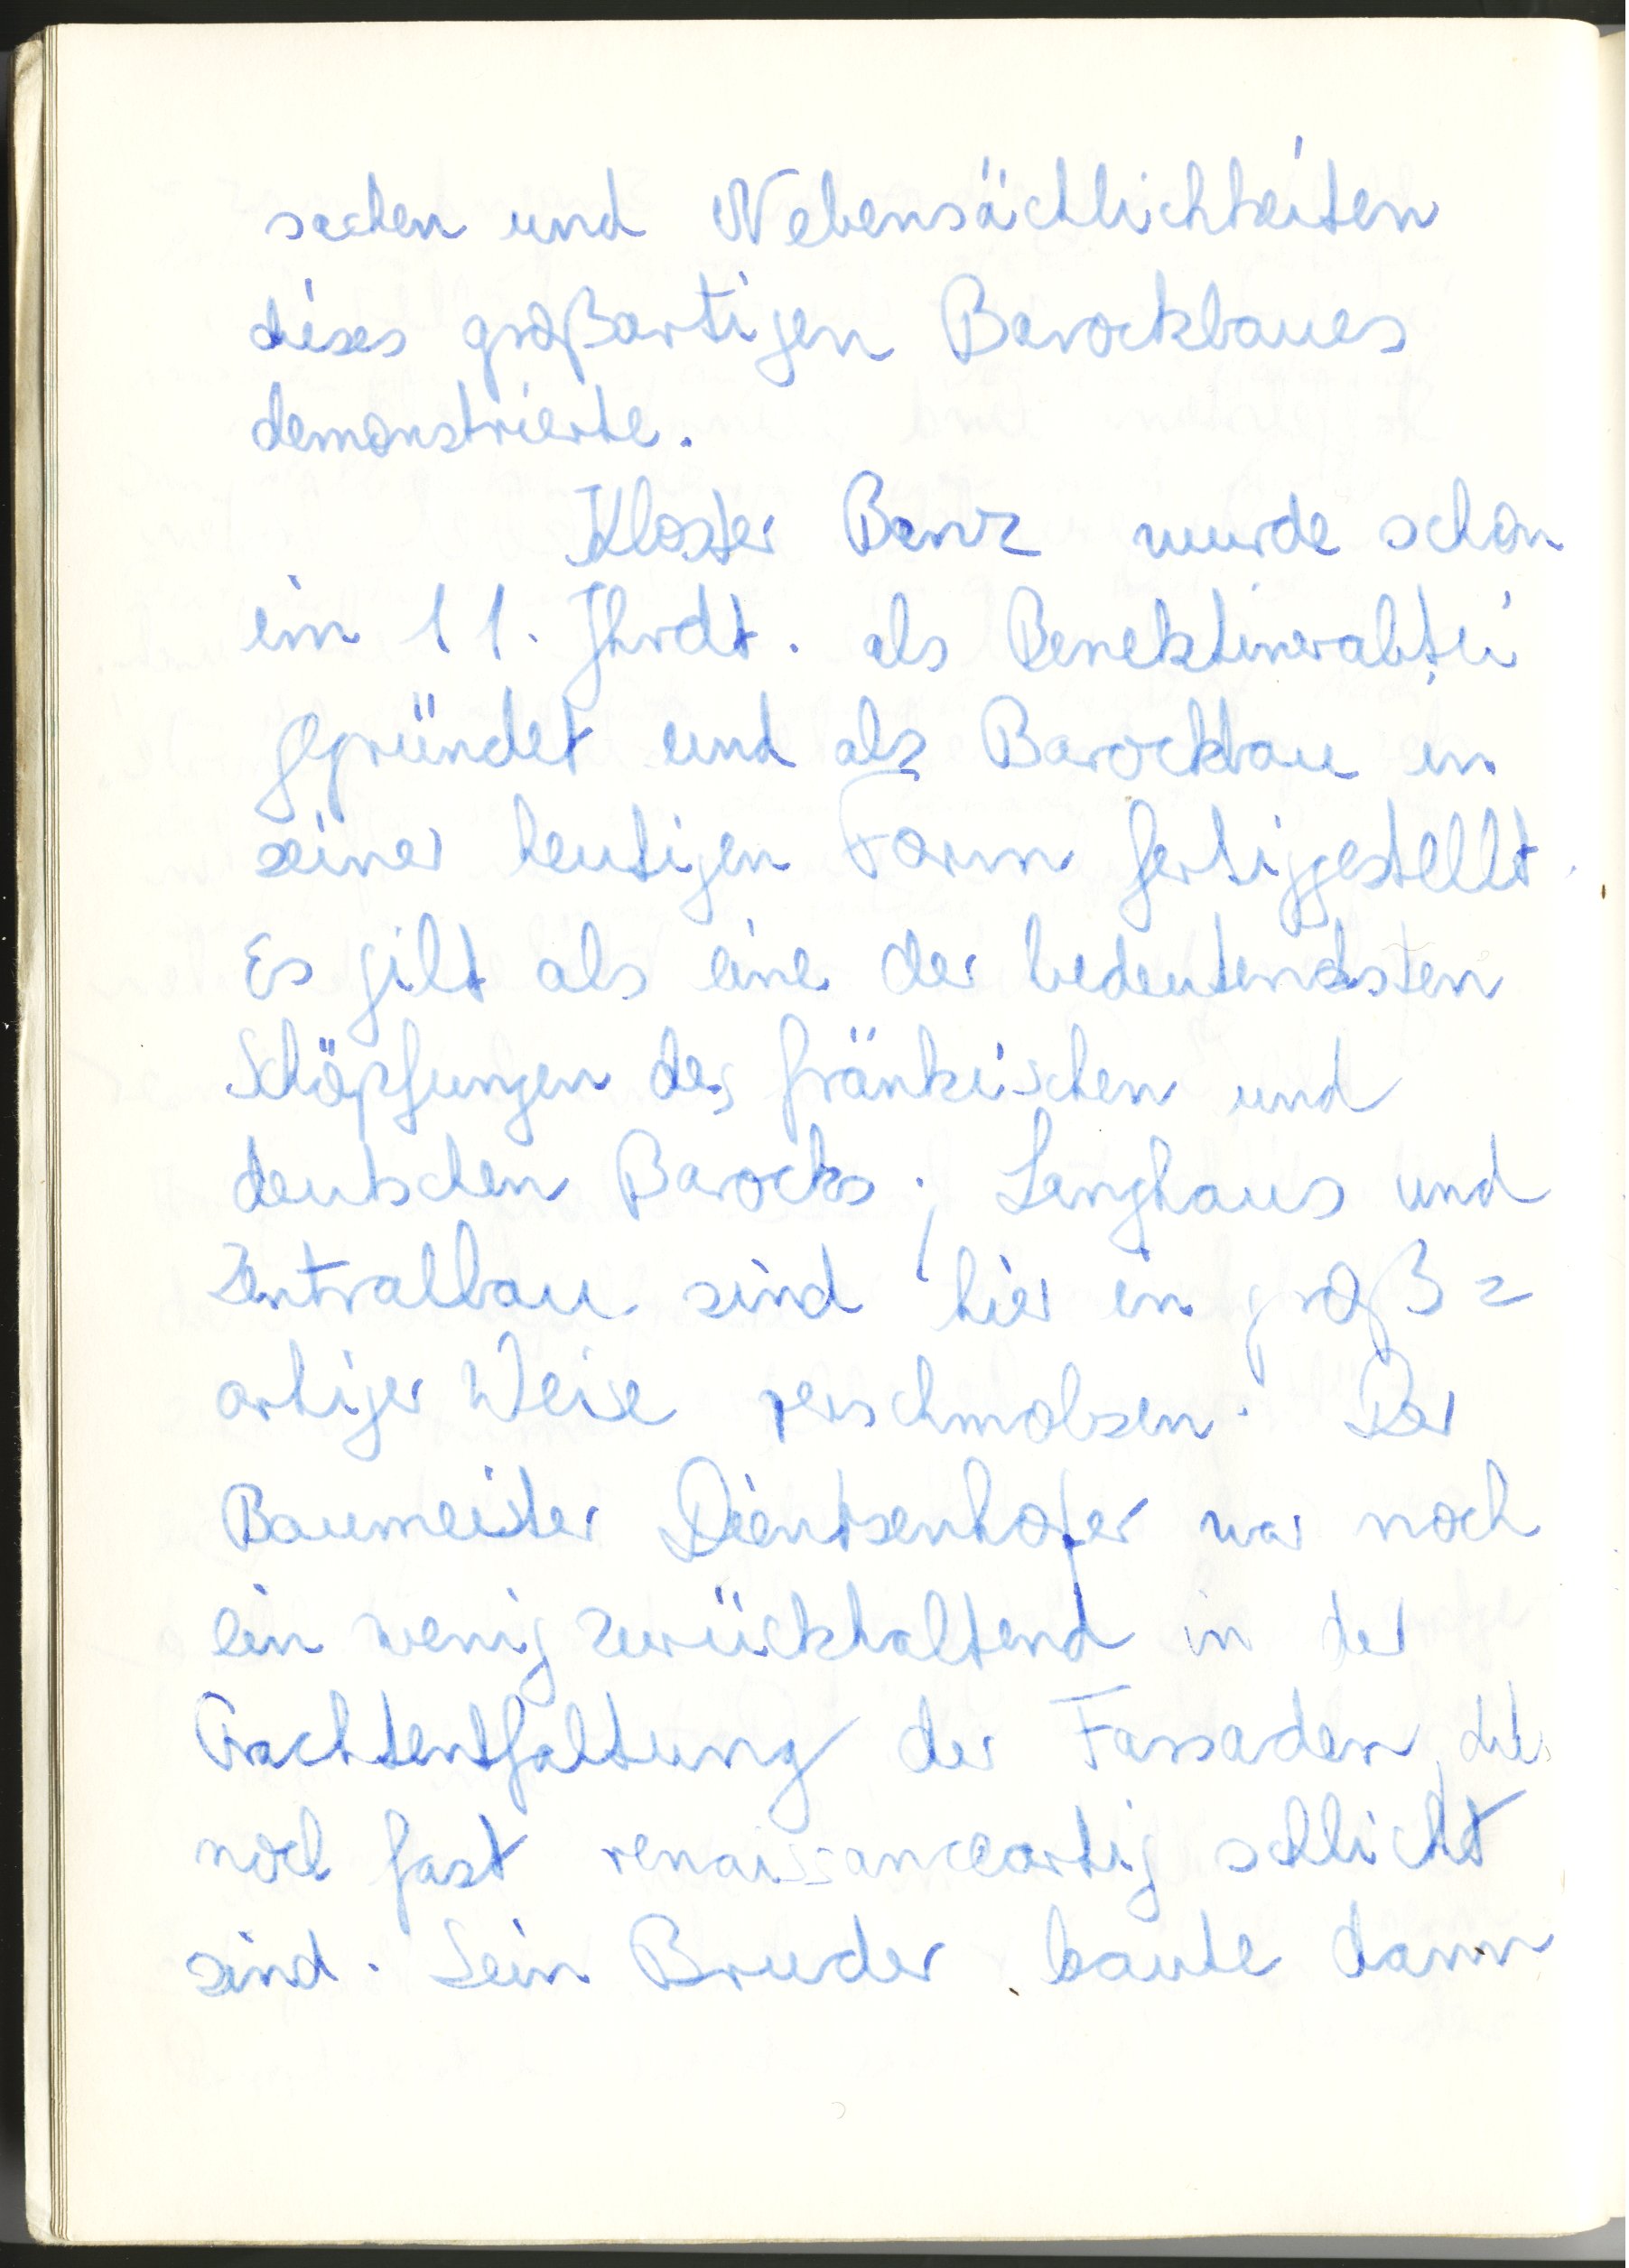 sachen und Nebensächlichkeiten
dieses großartigen Barockbaues
demonstrierte.
Kloster Banz wurde schon
im 11. Jhrdt. als Benektinerabtei
gegründet und als Barockbau in
seiner heutigen Form fertiggestellt.
Es gilt als eine der bedeutendsten
Schöpfungen des fränkischen und
deutschen Barocks; Langhaus und
Zentralbau sind hier in groß=
artiger Weise verschmolsen. Der
Baumeister Dientsenhofer war noch
ein wenig zurückhaltend in der
Prachtentfaltung der Fassaden, die
noch fast renaissanceartig schlicht
sind. Sein Bruder baute dann